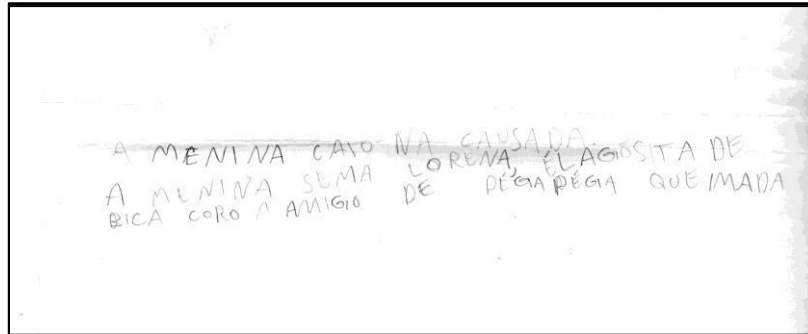 A MENINA CAIO NA CAUSADA.
A MENINA SEMA LORENA, ÉLAGOSITA DE
BICA CORO A AMIGIO DE PÉGAPÉGA QUEIMADA